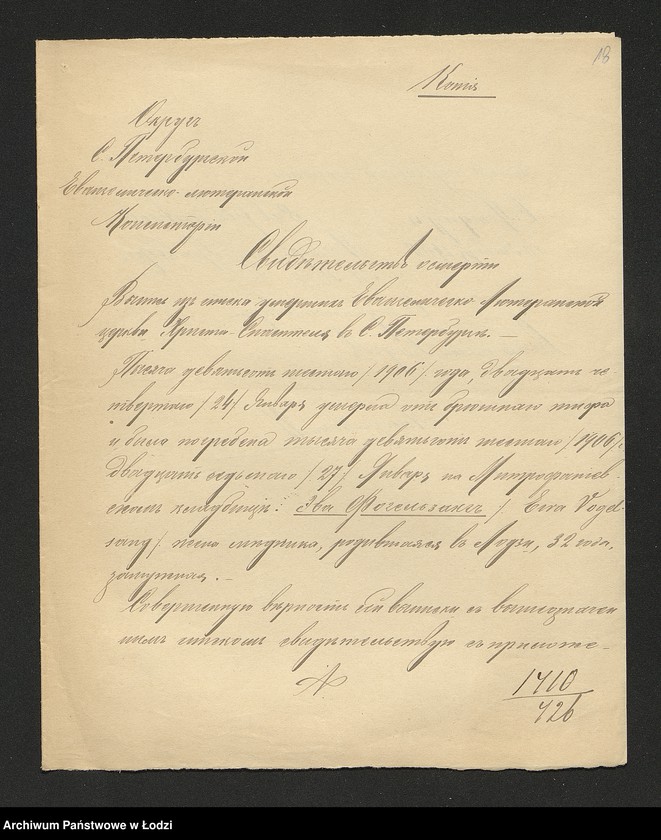 18
Копія
Округъ
С. Петербургской
Евангелическо-лютеранской
Консисторіи
Свидѣтельство о смерти
Выпись изъ списка умершихъ Евангелическо Лютеранской
церкви Христа-Спасителя въ С. Петербургѣ. —
Тысяча девятьсотъ шестаго /1906/ года, двадцать че
твертаго /24/ Января умерла отъ брюшнаго тифа
и была погребена тысяча девятьсотъ шестаго /1906/г.
двадцать седьмаго /27/ Января на Митрофаніев-
скомъ кладбищѣ: Эва Фогельзангъ /Ewa Vogel-
sang/ жена мѣдника, родившаяся въ Лодзи, 32 года,
замужняя. —
Совершенную вѣрность сей выписи съ вышеозначен
нымъ спискомъ свидѣтельствую съ приложе-
1410
426
Archiwum Państwowe w Łodzi